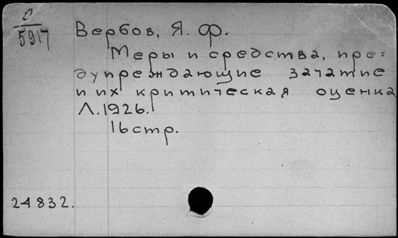 С
5917
Вербов, Я. Ф.
Меры и средства, пре-
дупреждающие зачатие
и их критическая оценка
Л. 1926.
16стр.
24832.